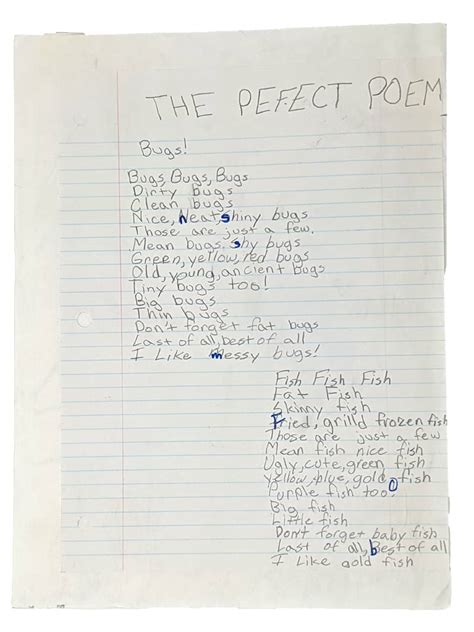 THE PEFECT POEM
Bugs!
Bugs, Bugs, Bugs
Dirty bugs
Clean bugs
Nice, Neat, shiny bugs
Those are just a few.
Mean bugs, shy bugs
Green, yellow, red bugs
Old, young, ancient bugs
Tiny bugs too!
Big bugs
Thin bugs
Don't forget fat bugs
Last of all, best of all
I Like messy bugs!
Fish Fish Fish
Fat Fish
Skinny fish
Fried, grill'd frozen fish
Those are just a few
Mean fish nice fish
Ugly, cute, green fish
Yellow, blue, gold fish
Purple fish too
Big fish
Little fish
Don't forget baby fish
Last of all, best of all
I Like gold fish